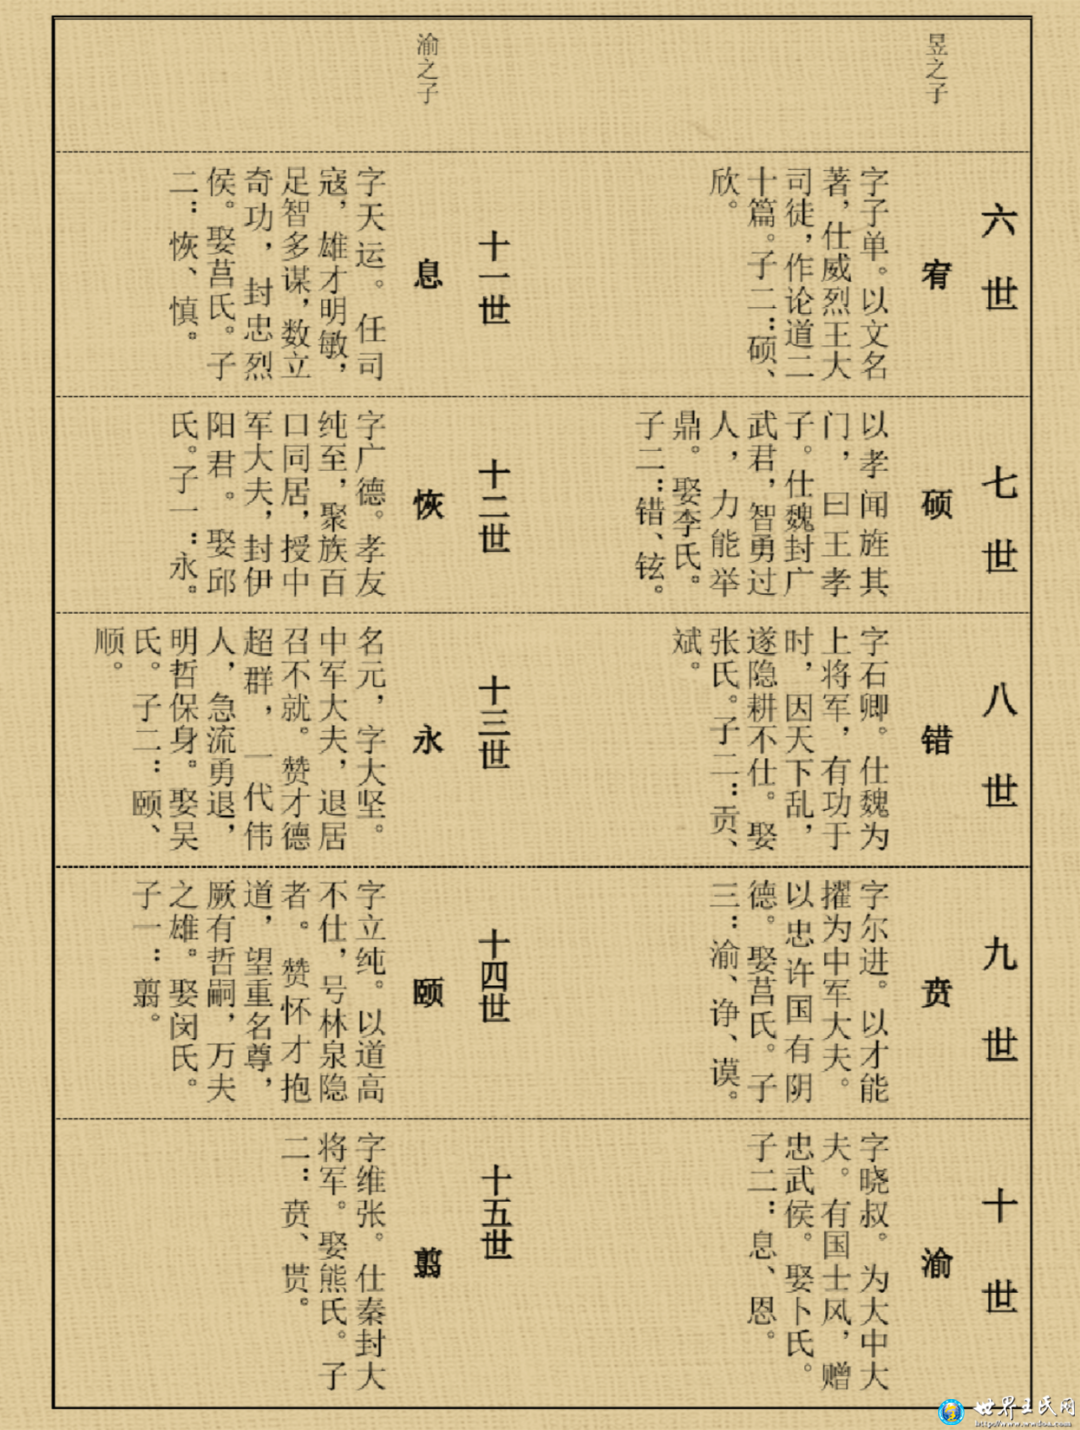 昱之子
六世
宥
字子单。以文名
著，仕威烈王大
司徒，作论道二
十篇。子二：硕、
欣。
七世
硕
以孝闻旌其
门，曰王孝
子。仕魏封广
武君，智勇过
人，力能举
鼎。娶李氏。
子二：错、铉。
八世
错
字石卿。仕魏为
上将军，有功于
时，因天下乱，
遂隐耕不仕。娶
张氏。子二：贡、
斌。
九世
贲
字尔进。以才能
擢为中军大夫。
以忠许国有阴
德。娶莒氏。子
三：渝、诤、谟。
十世
渝
字晓叔。为大中大
夫。有国士风，赠
忠武侯。娶卜氏。
子二：息、恩。
渝之子
十一世
息
字天运。任司
寇，雄才明敏，
足智多谋，数立
奇功，封忠烈
侯。娶莒氏。子
二：恢、慎。
十二世
恢
字广德。孝友
纯至，聚族百
口同居，授中
军大夫，封伊
阳君。娶邱
氏。子一：永。
十三世
永
名元，字大坚。
中军大夫，退居
召不就。赞才德
超群，一代伟
人，急流勇退，
明哲保身。娶吴
氏。子二：颐、
顺。
十四世
颐
字立纯。以道高
不仕，号林泉隐
者。赞怀才抱
道，望重名尊，
厥有哲嗣，万夫
之雄。娶闵氏。
子一：翦。
十五世
翦
字维张。仕秦封大
将军。娶熊氏。子
二：贲、贳。
世界王氏网